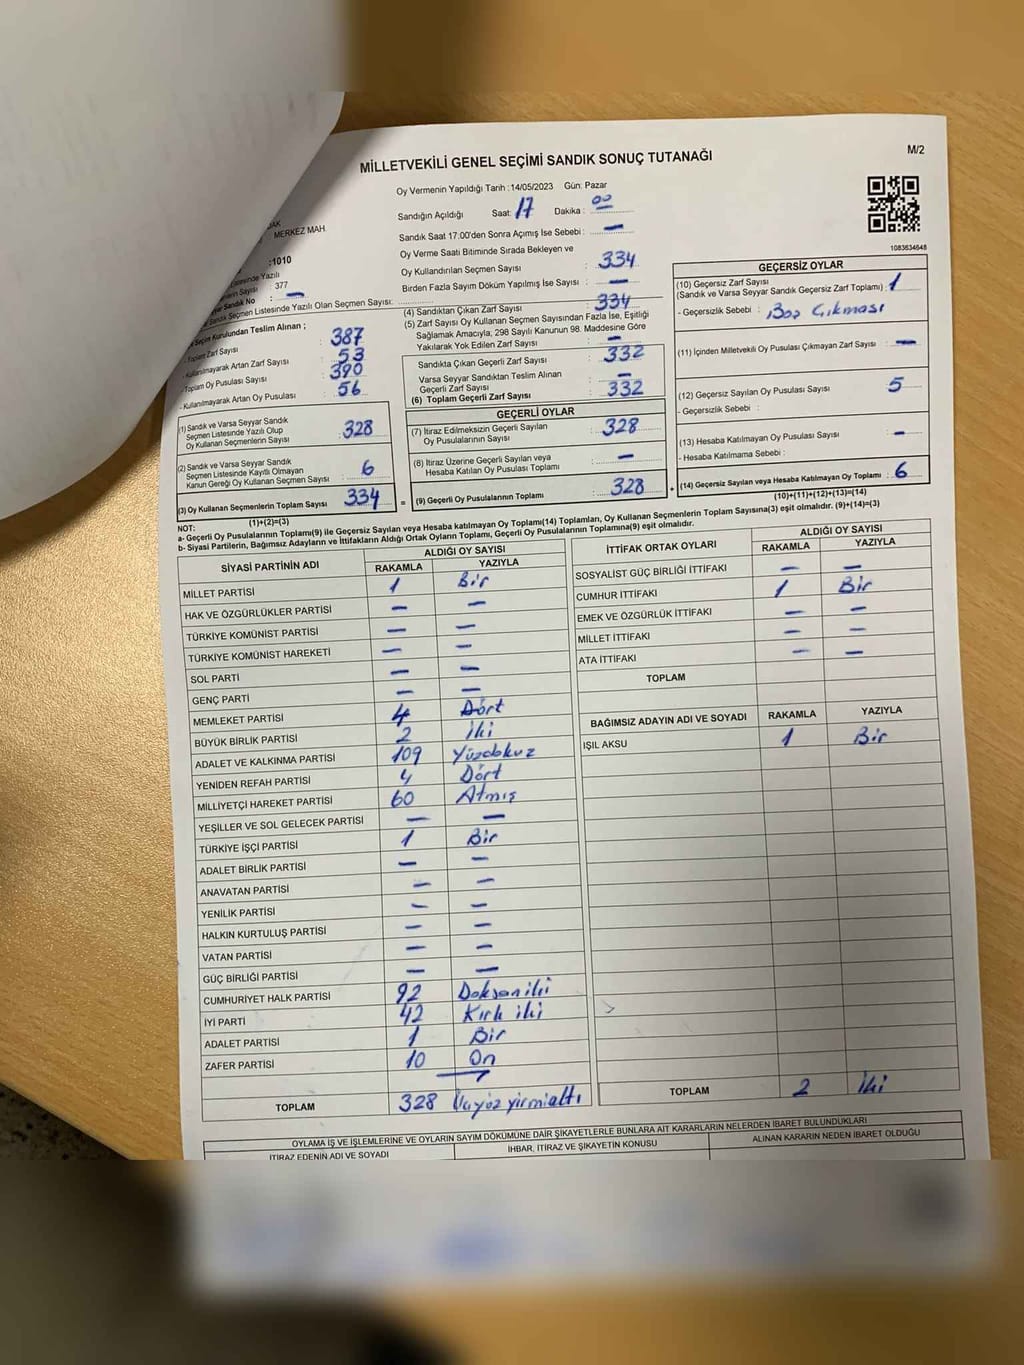 MİLLETVEKİLİ GENEL SEÇİMİ SANDIK SONUÇ TUTANAĞI
M/2
Oy Vermenin Yapıldığı Tarih : 14/05/2023 Gün: Pazar
Sandığın Açıldığı Saat: 17 Dakika : 00
MERKEZ MAH.
Sandık Saat 17:00'den Sonra Açımış İse Sebebi : —
:1010
Oy Verme Saati Bitiminde Sırada Bekleyen ve
Oy Kullandırılan Seçmen Sayısı : 334
377
Birden Fazla Sayım Döküm Yapılmış İse Sayısı : —
Sandık No : —
Sandık Seçmen Listesinde Yazılı Olan Seçmen Sayısı:
1083634648
Seçim Kurulundan Teslim Alınan ;
Toplam Zarf Sayısı : 387
- Kullanılmayarak Artan Zarf Sayısı : 53
- Toplam Oy Pusulası Sayısı : 390
- Kullanılmayarak Artan Oy Pusulası : 56
(1) Sandık ve Varsa Seyyar Sandık
Seçmen Listesinde Yazılı Olup
Oy Kullanan Seçmenlerin Sayısı : 328
(2) Sandık ve Varsa Seyyar Sandık
Seçmen Listesinde Kayıtlı Olmayan
Kanun Gereği Oy Kullanan Seçmen Sayısı : 6
(3) Oy Kullanan Seçmenlerin Toplam Sayısı : 334
(1)+(2)=(3)
(4) Sandıktan Çıkan Zarf Sayısı : 334
(5) Zarf Sayısı Oy Kullanan Seçmen Sayısından Fazla İse, Eşitliği
Sağlamak Amacıyla, 298 Sayılı Kanunun 98. Maddesine Göre
Yakılarak Yok Edilen Zarf Sayısı : —
Sandıkta Çıkan Geçerli Zarf Sayısı : 332
Varsa Seyyar Sandıktan Teslim Alınan
Geçerli Zarf Sayısı : —
(6) Toplam Geçerli Zarf Sayısı : 332
GEÇERLİ OYLAR
(7) İtiraz Edilmeksizin Geçerli Sayılan
Oy Pusulalarının Sayısı : 328
(8) İtiraz Üzerine Geçerli Sayılan veya
Hesaba Katılan Oy Pusulası Toplamı : —
= (9) Geçerli Oy Pusulalarının Toplamı : 328 +
GEÇERSİZ OYLAR
(10) Geçersiz Zarf Sayısı
(Sandık ve Varsa Seyyar Sandık Geçersiz Zarf Toplamı) : 1
- Geçersizlik Sebebi : Boş Çıkması
(11) İçinden Milletvekili Oy Pusulası Çıkmayan Zarf Sayısı : —
(12) Geçersiz Sayılan Oy Pusulası Sayısı : 5
- Geçersizlik Sebebi :
(13) Hesaba Katılmayan Oy Pusulası Sayısı : —
- Hesaba Katılmama Sebebi :
(14) Geçersiz Sayılan veya Hesaba Katılmayan Oy Toplamı : 6
(10)+(11)+(12)+(13)=(14)
NOT:
a- Geçerli Oy Pusulalarının Toplamı(9) ile Geçersiz Sayılan veya Hesaba katılmayan Oy Toplamı(14) Toplamları, Oy Kullanan Seçmenlerin Toplam Sayısına(3) eşit olmalıdır. (9)+(14)=(3)
b- Siyasi Partilerin, Bağımsız Adayların ve İttifakların Aldığı Ortak Oyların Toplamı, Geçerli Oy Pusulalarının Toplamına(9) eşit olmalıdır.
SİYASİ PARTİNİN ADI ALDIĞI OY SAYISI
RAKAMLA YAZIYLA
MİLLET PARTİSİ 1 Bir
HAK VE ÖZGÜRLÜKLER PARTİSİ — —
TÜRKİYE KOMÜNİST PARTİSİ — —
TÜRKİYE KOMÜNİST HAREKETİ — —
SOL PARTİ — —
GENÇ PARTİ — —
MEMLEKET PARTİSİ 4 Dört
BÜYÜK BİRLİK PARTİSİ 2 İki
ADALET VE KALKINMA PARTİSİ 109 Yüzdokuz
YENİDEN REFAH PARTİSİ 4 Dört
MİLLİYETÇİ HAREKET PARTİSİ 60 Atmış
YEŞİLLER VE SOL GELECEK PARTİSİ — —
TÜRKİYE İŞÇİ PARTİSİ 1 Bir
ADALET BİRLİK PARTİSİ — —
ANAVATAN PARTİSİ — —
YENİLİK PARTİSİ — —
HALKIN KURTULUŞ PARTİSİ — —
VATAN PARTİSİ — —
GÜÇ BİRLİĞİ PARTİSİ — —
CUMHURİYET HALK PARTİSİ 92 Doksan iki
İYİ PARTİ 42 Kırk iki
ADALET PARTİSİ 1 Bir
ZAFER PARTİSİ 10 On
TOPLAM 328 Üçyüz yirmialtı
İTTİFAK ORTAK OYLARI ALDIĞI OY SAYISI
RAKAMLA YAZIYLA
SOSYALİST GÜÇ BİRLİĞİ İTTİFAKI — —
CUMHUR İTTİFAKI 1 Bir
EMEK VE ÖZGÜRLÜK İTTİFAKI — —
MİLLET İTTİFAKI — —
ATA İTTİFAKI — —
TOPLAM
BAĞIMSIZ ADAYIN ADI VE SOYADI RAKAMLA YAZIYLA
IŞIL AKSU 1 Bir
TOPLAM 2 İki
OYLAMA İŞ VE İŞLEMLERİNE VE OYLARIN SAYIM DÖKÜMÜNE DAİR ŞİKAYETLERLE BUNLARA AİT KARARLARIN NELERDEN İBARET BULUNDUKLARI
İTİRAZ EDENİN ADI VE SOYADI İHBAR, İTİRAZ VE ŞİKAYETİN KONUSU ALINAN KARARIN NEDEN İBARET OLDUĞU